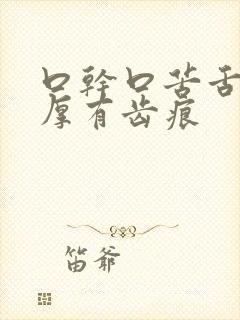 口幹口苦舌
厚有齿痕
笛爷